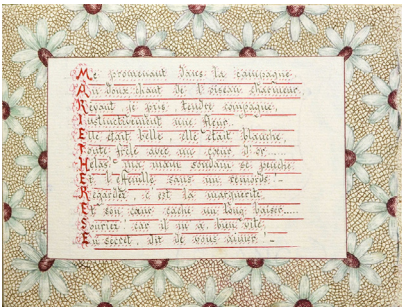 Me promenant dans la campagne,
Au doux chant de l'oiseau charmeur,
Rêvant je pris, tendre compagne,
Instinctivement une fleur.
Elle était belle, elle était blanche,
Toute frêle avec un cœur d'or...
Hélas! ma main soudain se penche!
Et l'effeuille sans un remords!_
Regardez, c'est la marguerite
Et son cœur cache un long baiser.....
Souriez car il m'a bien vite
En secret, dit de vous aimer!_